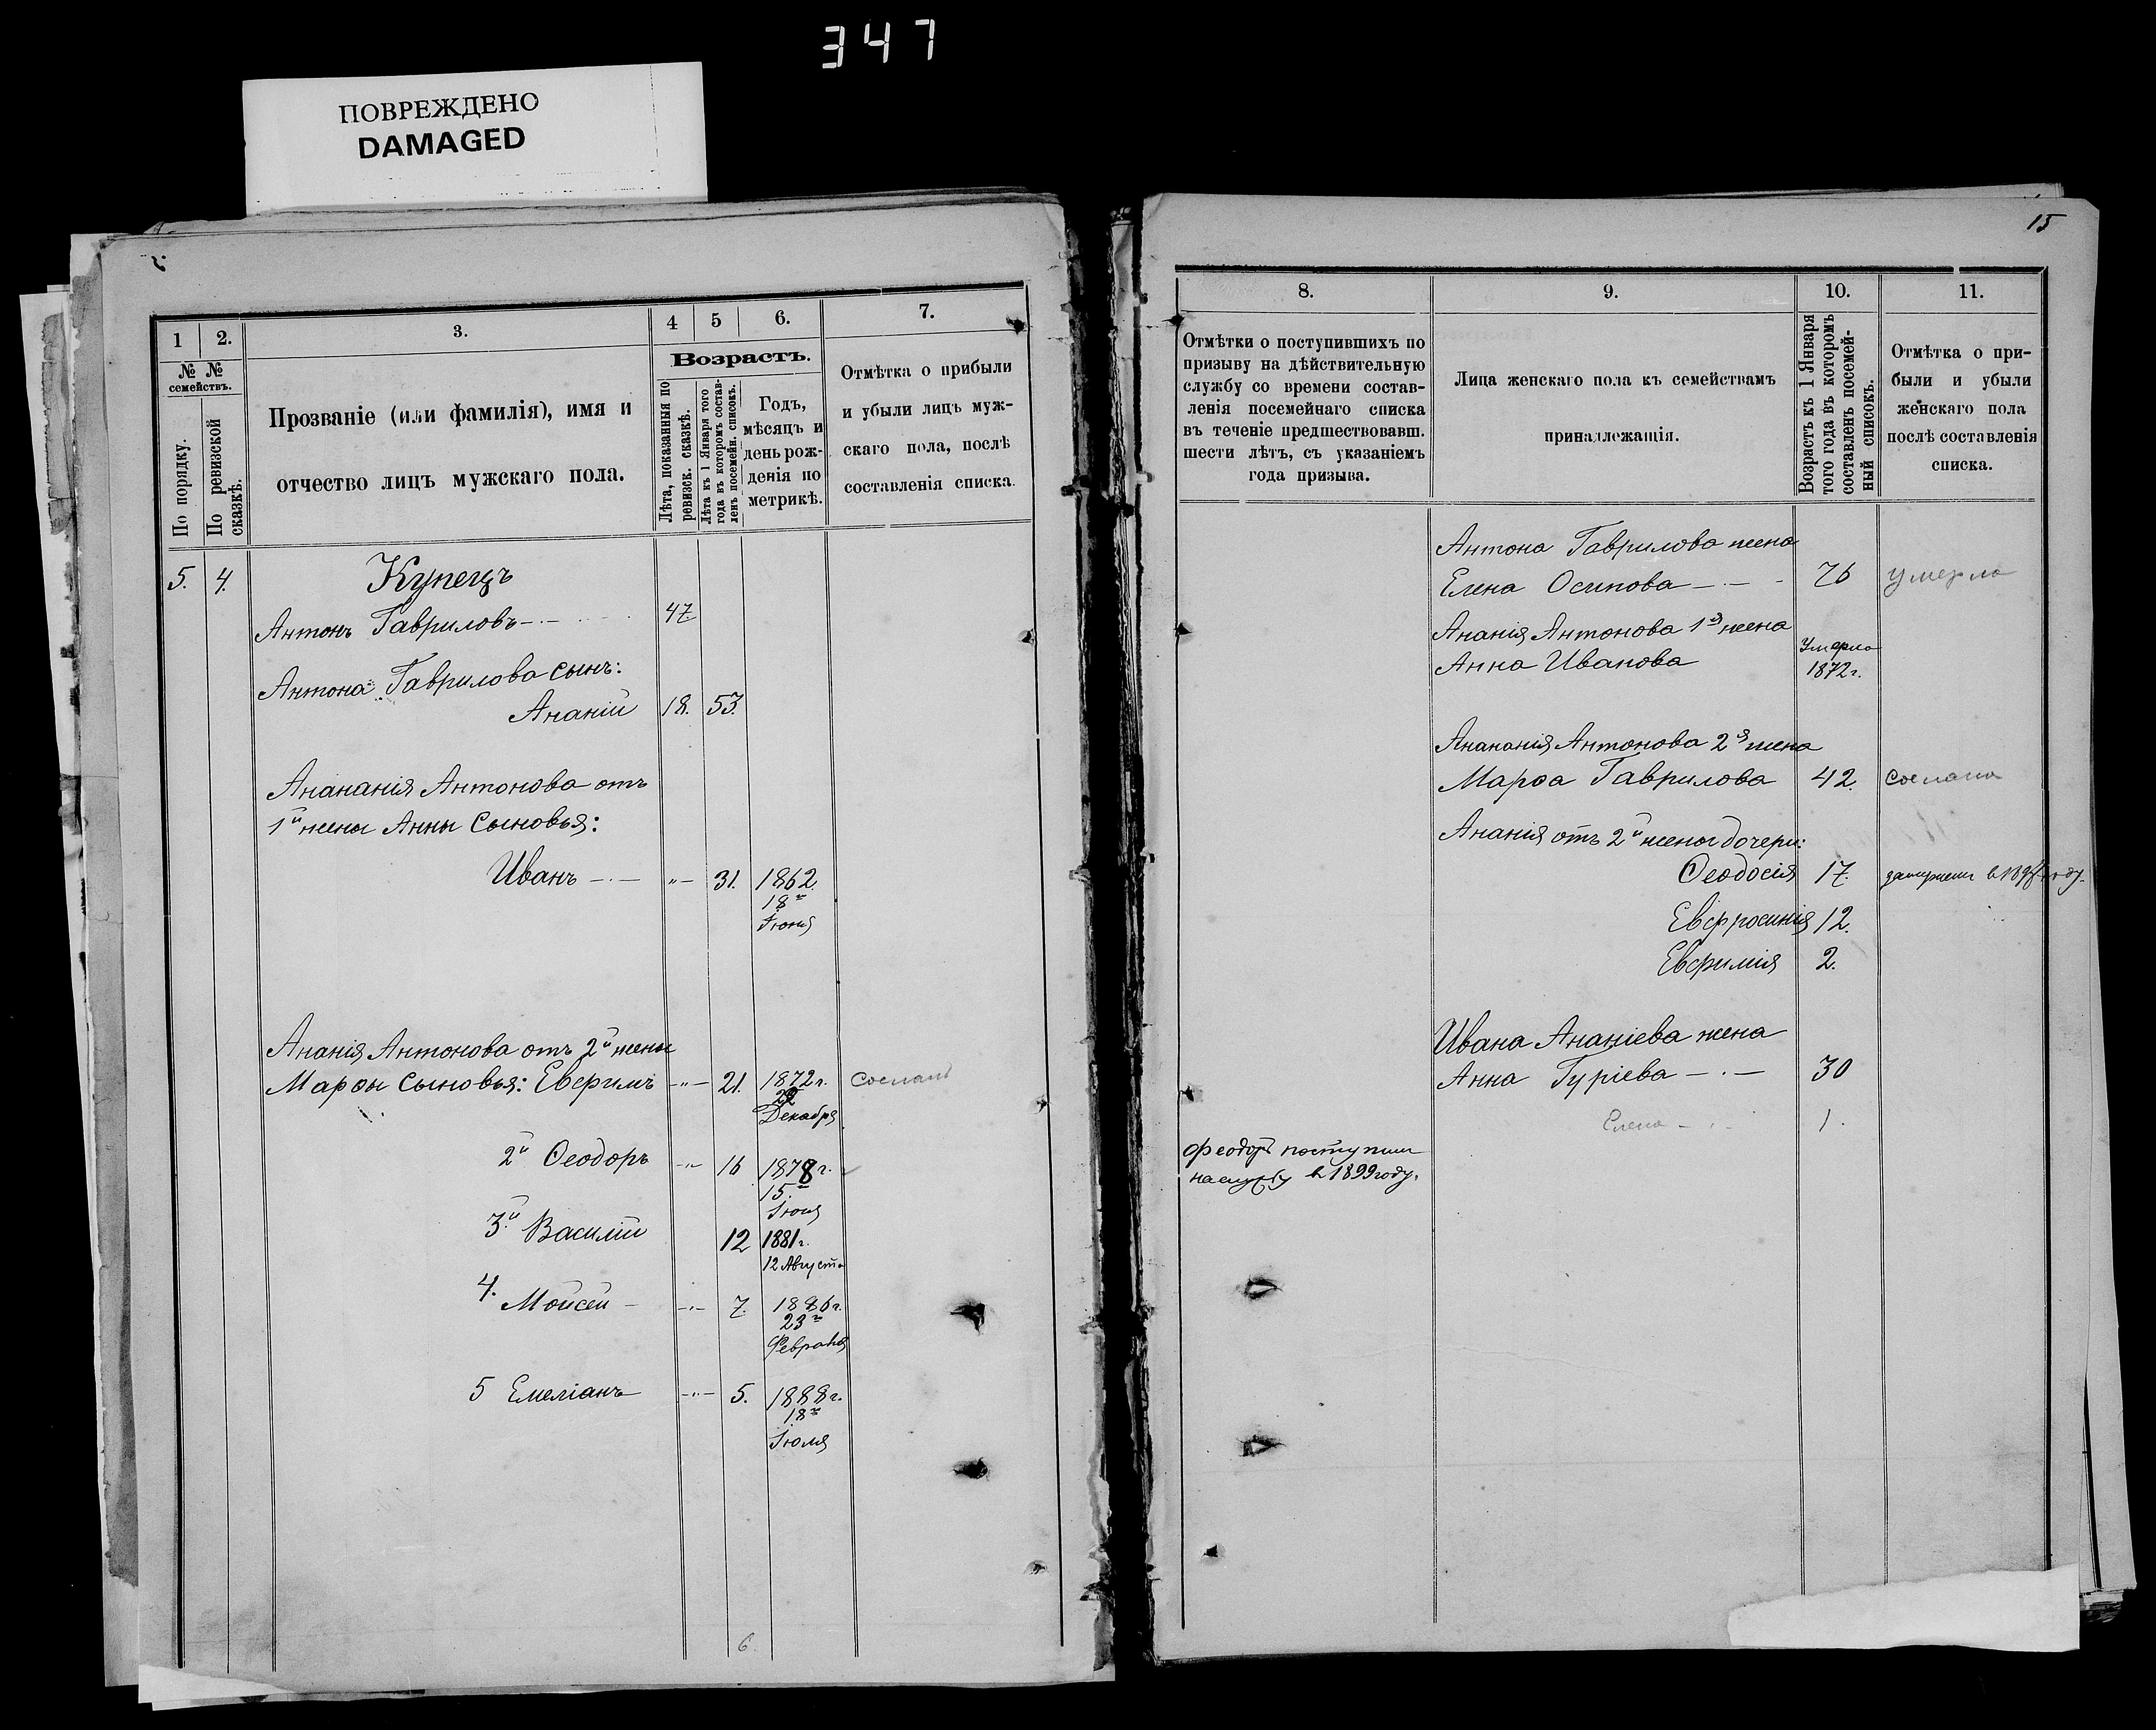 347
ПОВРЕЖДЕНО
DAMAGED
1
2.
3.
4
5
6.
7.
№ №
семействъ.
По порядку.
По ревизской
сказкѣ.
Прозваніе (или фамилія), имя и
отчество лицъ мужскаго пола.
Возрастъ.
Лѣта, показанныя по
ревизск. сказкѣ.
Лѣта къ 1 Января того
года въ которомъ состав-
ленъ посемейн. списокъ.
Годъ,
мѣсяцъ и
день рож-
денія по
метрикѣ.
Отмѣтка о прибыли
и убыли лицъ муж-
скаго пола, послѣ
составленія списка.
5. 4. Купецъ
Антонъ Гавриловъ 47
Антона Гаврилова сынъ:
Ананій 18. 53.
Анананія Антонова отъ
1й жены Анны Сыновья:
Иванъ 31. 1862.
18го
Іюня
Ананія Антонова отъ 2й жены
Марѳы Сыновья: Евфимъ 21. 1872 г.
22
Декабря
сосланъ
2й Ѳеодоръ 16 1878 г.
15.
3й Василій 12 1881 г.
12 Августа
4. Моисей 7. 1886 г.
23го
Февраля
5 Емеліанъ 5. 1888 г.
18го
Іюля
6.
15
8.
9.
10.
11.
Отмѣтки о поступившихъ по
призыву на дѣйствительную
службу со времени состав-
ленія посемейнаго списка
въ теченіе предшествовавш.
шести лѣтъ, съ указаніемъ
года призыва.
Лица женскаго пола къ семействамъ
принадлежащія.
Возрастъ къ 1 Января
того года въ которомъ
составленъ посемей-
ный списокъ.
Отмѣтка о при-
были и убыли
женскаго пола
послѣ составленія
списка.
Антона Гаврилова жена
Елена Осипова 76 умерла
Ананія Антонова 1я жена
Анна Иванова Умерла
1872 г.
Анананія Антонова 2я жена
Марѳа Гаврилова 42. сослана
Ананія отъ 2й жены дочери:
Ѳеодосія 17.
Евфросинія 12.
Евфимія 2.
Ивана Ананіева жена
Анна Гуріева 30
Елена 1.
Феодоръ поступилъ
на службу в 1899 году.